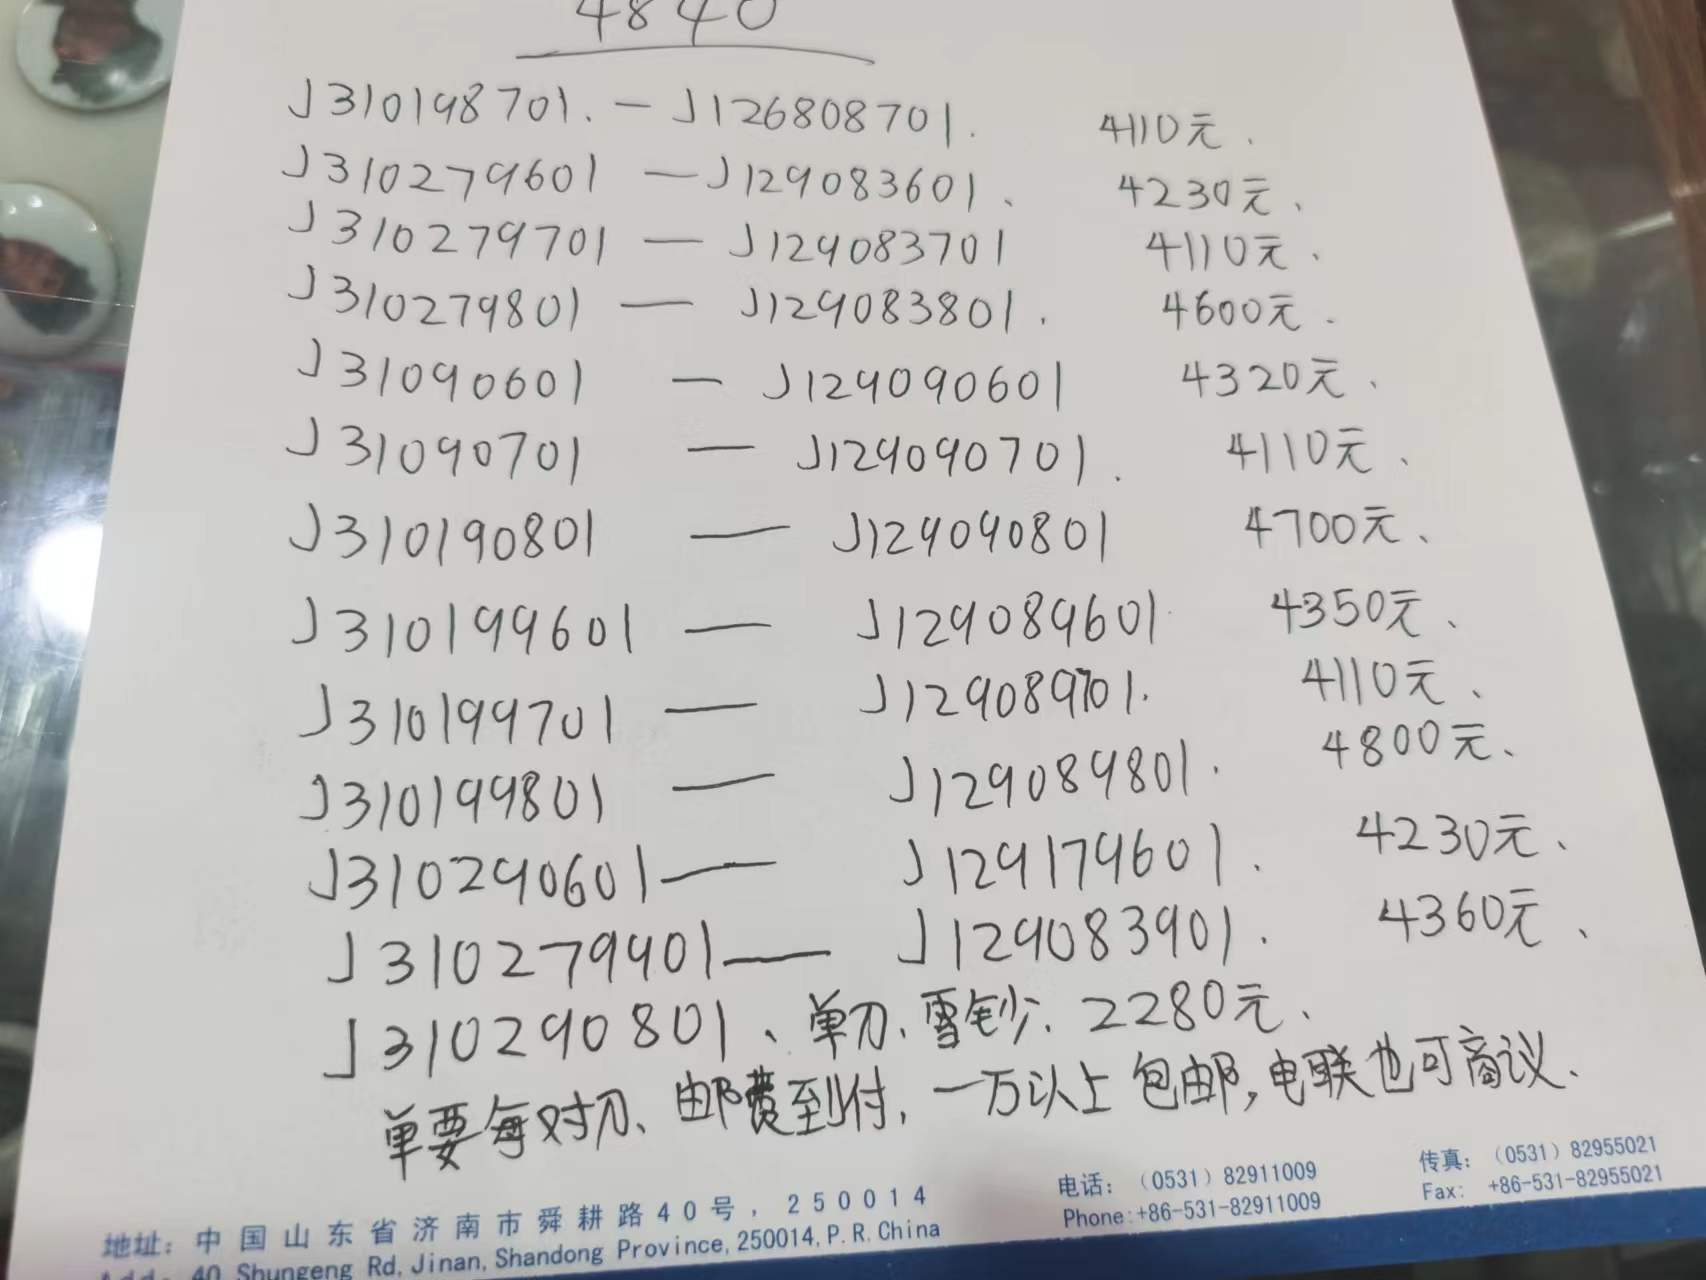 4840
J310198701. — J126808701. 4110元.
J310279601 — J129083601、 4230元、
J310279701 — J129083701 4110元、
J310279801 — J129083801. 4600元.
J31090601 — J129090601 4320元、
J31090701 — J129090701. 4110元、
J310190801 — J129090801 4700元、
J310199601 — J129089601. 4350元、
J310199701 — J129089701. 4110元、
J310199801 — J129089801. 4800元、
J310290601 — J129179601. 4230元、
J310279901 — J129083901. 4360元、
J310290801、单刀、雪钞、2280元、
单要每对刀、邮费到付,一万以上包邮,电联也可商议、
地址: 中国山东省济南市舜耕路40号, 250014 电话: (0531) 82911009 传真: (0531) 82955021
Add: 40 Shungeng Rd, Jinan, Shandong Province, 250014, P.R.China Phone:+86-531-82911009 Fax: +86-531-82955021